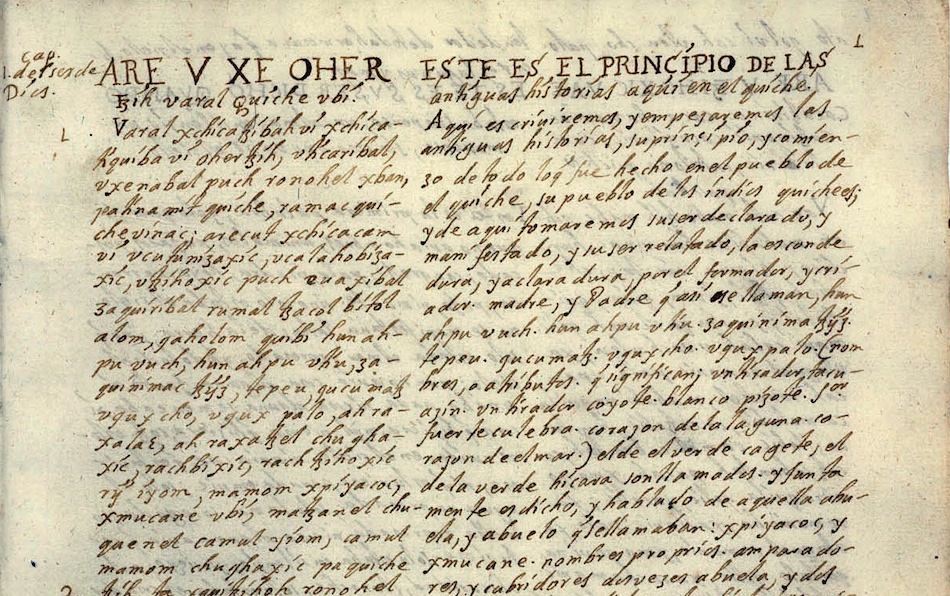 ARE V XE OHER
ꜩih varal Quiche vbi.
Varal xchicaꜩibah vi xchica-
tiquiba vi oher tzih, vticaribal,
vxenabal puch ronohel xban,
pa tinamit quiche, ramac qui-
che vinac; are cut xchicacam
vi vcutunizaxic, vcalahobiza-
xic, vtzihoxic puch euaxibal
zaquiribal rumal tzacol bitol
alom, qaholom quibi hun ah-
pu vuch, hun ahpu vtiu, za-
quinimac tzyz, tepeu gucumatz
vquxcho, vqux palo, ah ra-
xa lac, ah raxa tzel chugha-
xic, rachbixic, rachtzihoxic
rij iyom, mamom xpiyacoc,
xmucane vbi, matzanel chu-
quenel camul yiom, camul
mamom chughaxic pa quiche
tzih ta xquitzihoh ronohel
ESTE ES EL PRINCIPIO DE LAS
antiguas historias aqui en el quiche.
Aqui escriuiremos, y empesaremos las
antiguas historias, su principio, y comien-
zo de todo loq̃ fue hecho en el pueblo de
el quiche, su pueblo de los indios quichees;
y de aqui tomaremos su ser declarado, y
manifestado, y su ser relatado, la esconde
dura, y aclaradura, por el formador, y cri-
ador. madre, y Padre q̃ asi se llaman, hun
ahpu vuch. hun ahpu vtiu. zaquinima tzyz.
tepeu. gucumatz. vquxcho. vquxpalo. (nom
bres, o atributos. q̃ significan; vn tirador, tacu-
azin. vn tirador coyote. blanco pizote.
fuerte culebra. corazon de la laguna. co-
razon de el mar.) el de el verde cagete, el
de la verde hicara son llamados. y junta
mente es dicho, y hablado de aquella abu-
ela, y abuelo q̃ se llamaban: xpiyacoc, y
xmucane. nombres proprios. amparado-
res, y cubridores dos vezes abuela, y dos
1. Cap.
del ser de
Dios.
1
1
2